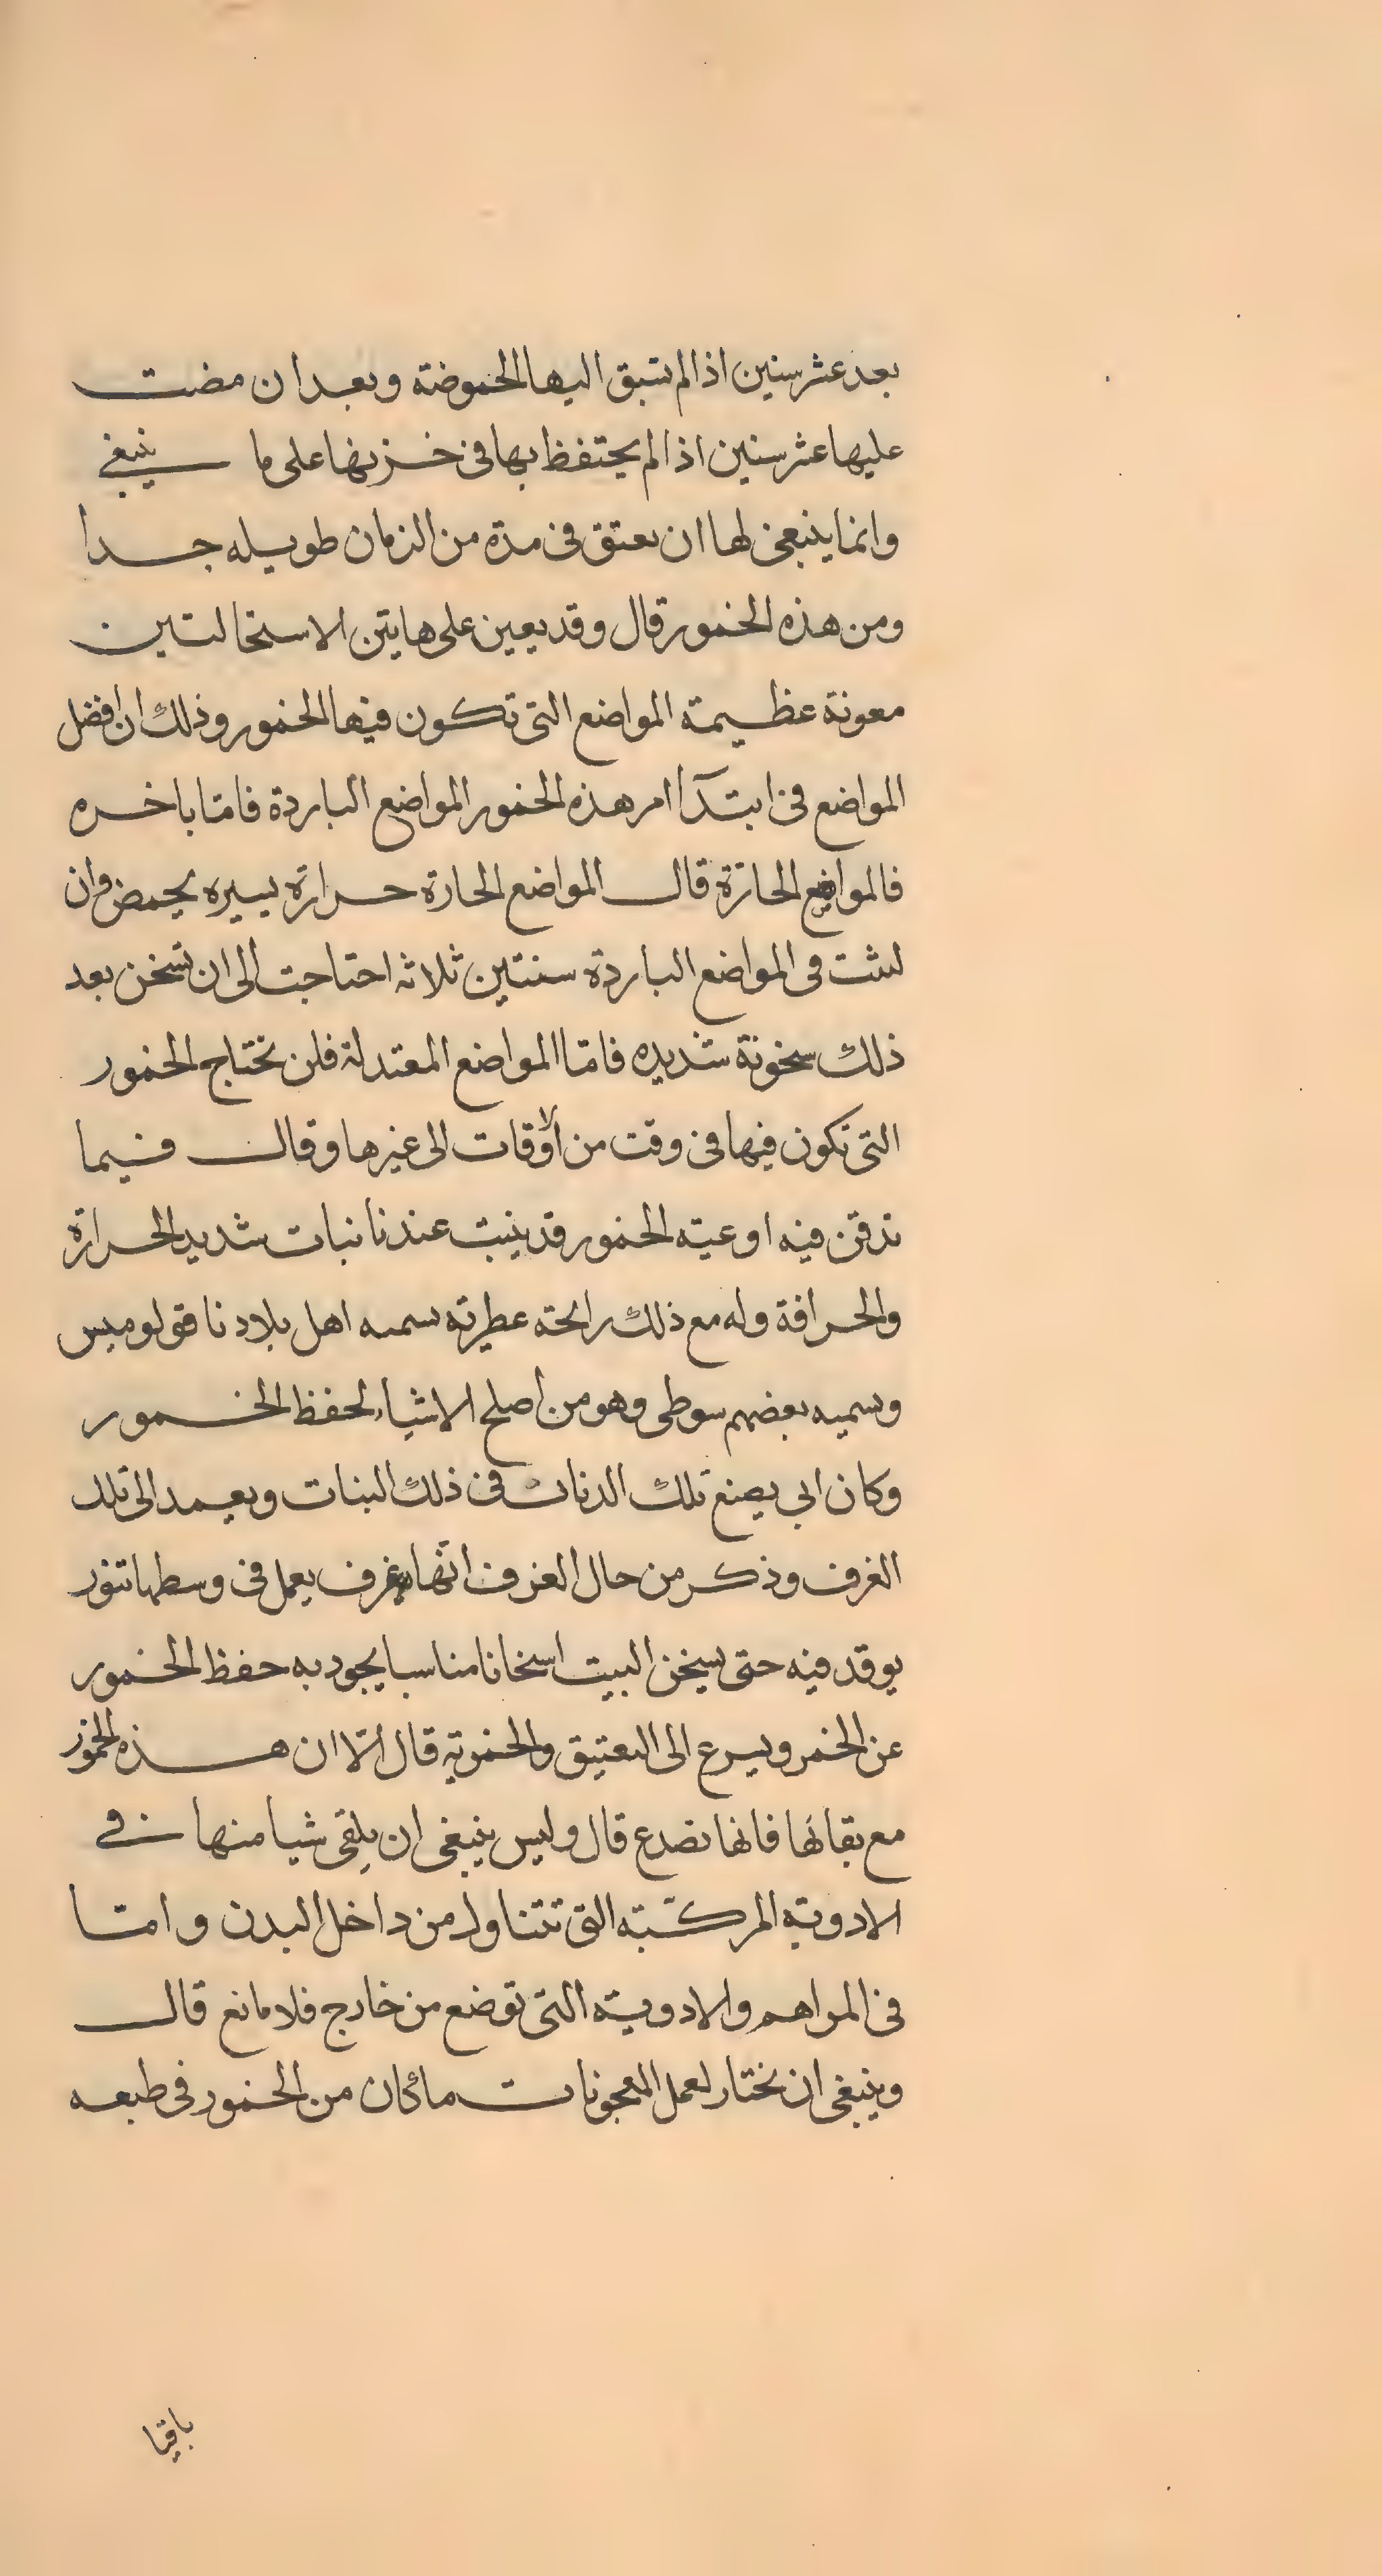 بعد عشر سنين اذا لم تسبق اليها الحموضة وبعد ان مضت
عليها عشر سنين اذا لم يحتفظ بها فى خزنها على ما ينبغي
وانما ينبغى لها ان تعتق فى مدة من الزمان طويله جدا
ومن هذه الخمور قال وقد يعين على هايتن الاستحالتين
معونة عظيمة المواضع التى تكون فيها الخمور وذلك ان افضل
المواضع فى ابتدآ امر هذه الخمور المواضع الباردة فامّا باخره
فالمواضع الحارّة قال المواضع الحارة حرارة يسيره يحمض وان
لبثت فى المواضع الباردة سنتين ثلاثه احتاجت الى ان تسخن بعد
ذلك سخونة شديده فامّا المواضع المعتدلة فلن تحتاج الخمور
التى تكون فيها فى وقت من الأوقات الى غيرها وقال فيما
تدفن فيه اوعية الخمور قد ينبت عندنا نبات شديد الحرارة
والحرافة وله مع ذلك رائحة عطرية يسميه اهل بلادنا قولوميس
ويسميه بعضهم سوطى وهو من اصلح الاشياء لحفظ الخمور
وكان ابى يصنع تلك الدنان فى ذلك النبات ويعمد الى تلك
الغرف وذكر من حال الغرف انّها غرف يعمل فى وسطها تنور
يوقد فيه حتى يسخن البيت اسخانا مناسبا يجود به حفظ الخمور
عن الخمر ويسرع الى التعتيق والخمرية قال الّا ان هذه الخمور
مع بقائها فانها تصدع قال وليس ينبغى ان يلقى شيا منها في
الادوية المركّبة التى تتناول من داخل البدن وامّا
فى المراهم والادوية التى توضع من خارج فلا مانع قال
وينبغى ان تختار لعمل المعجونات ما كان من الخمور فى طبعه
باقيا